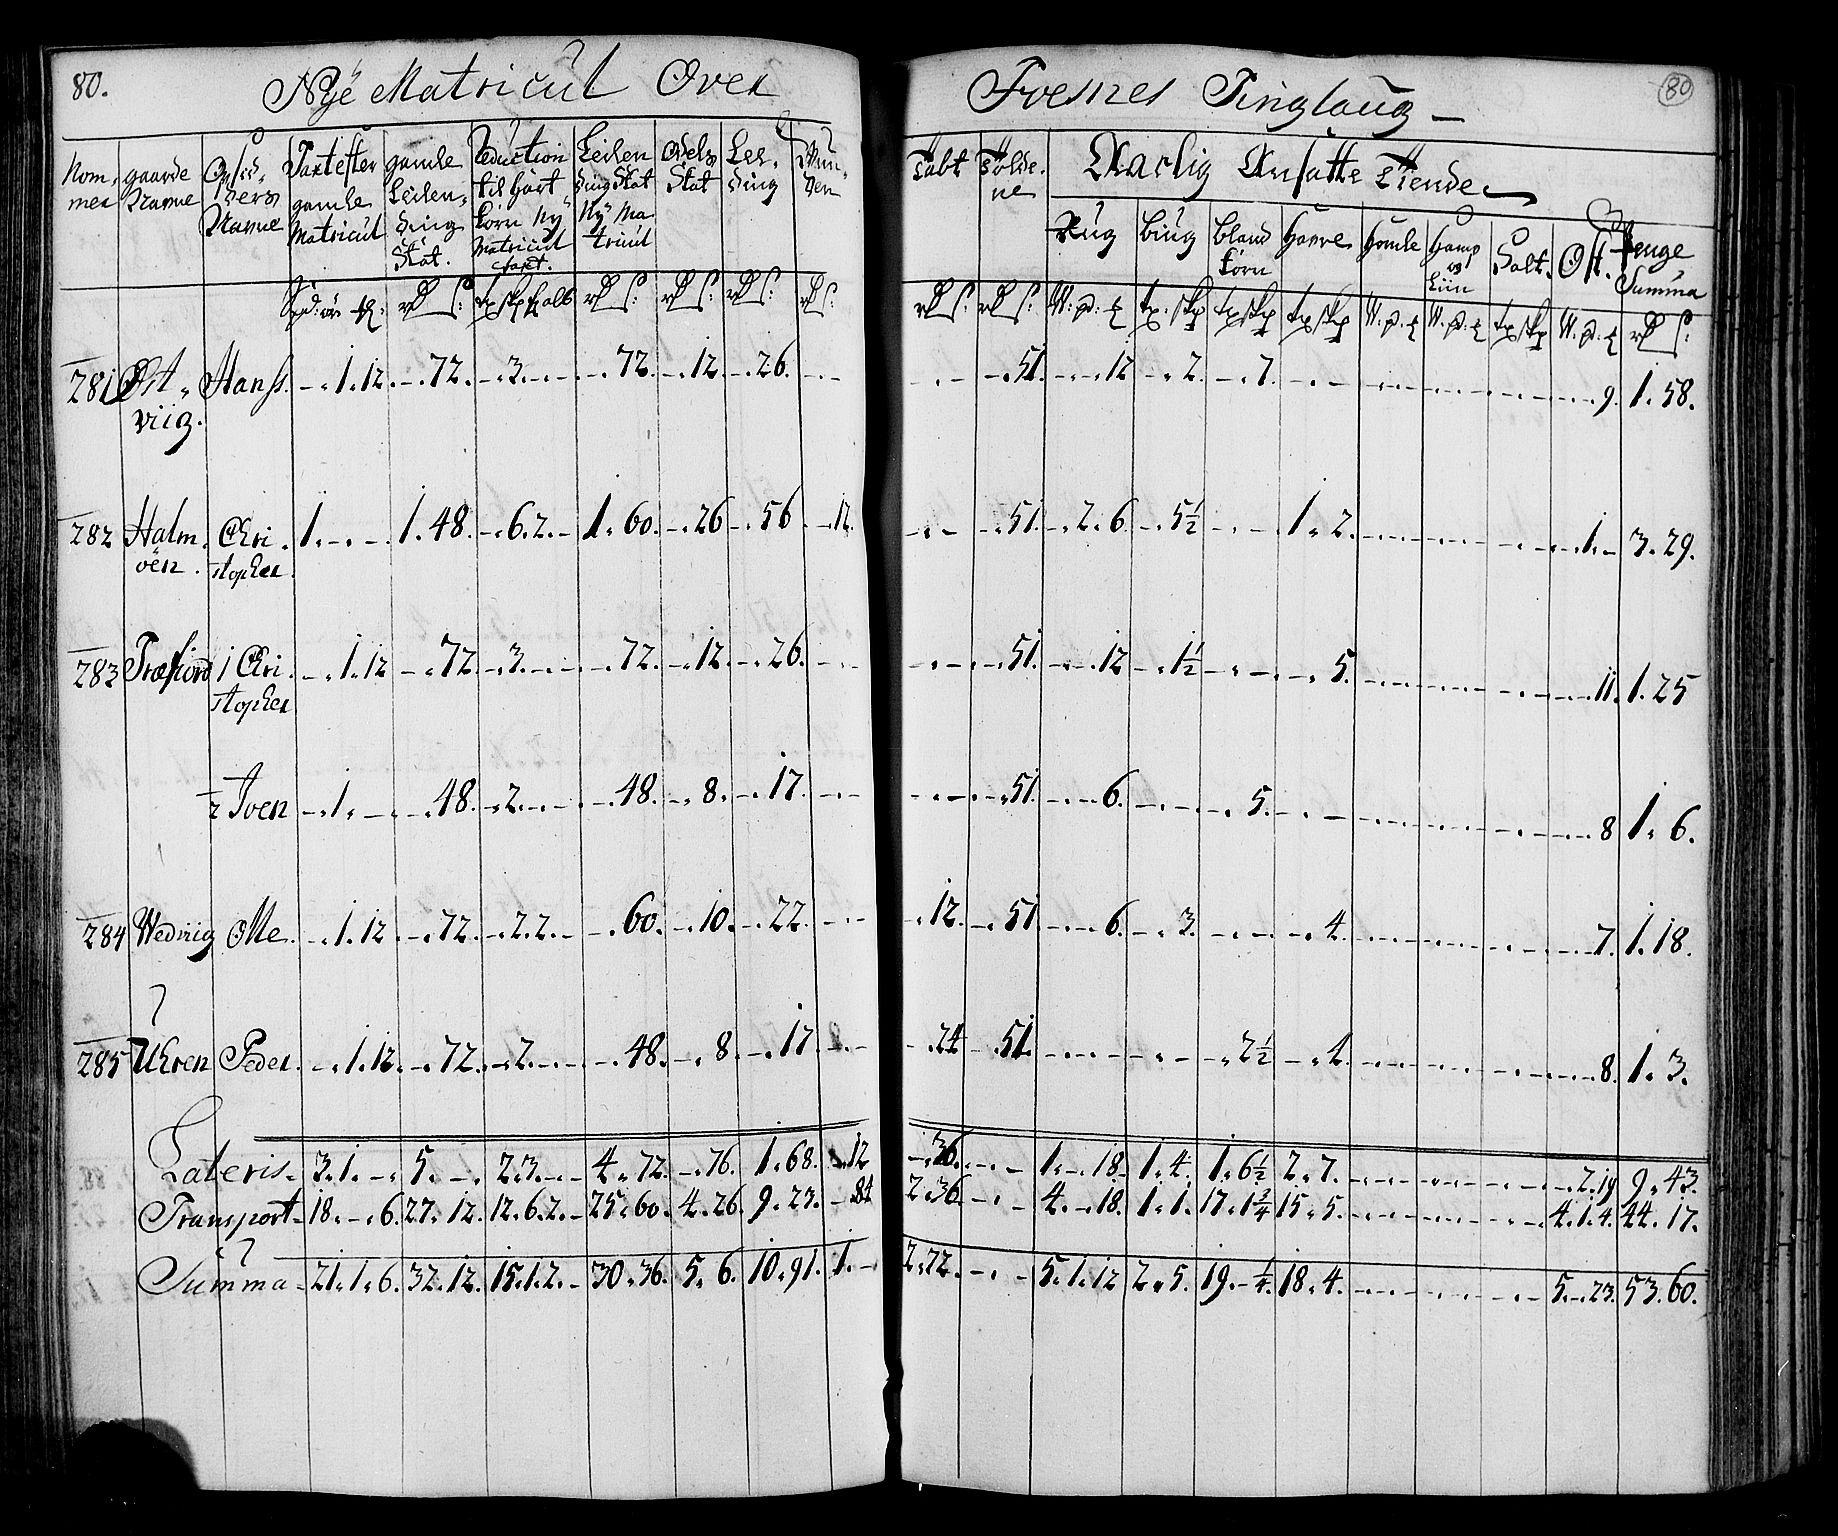 80.
Nÿe Matricul Over
Foesnes Tinglaug
80
Nom, gaarde Opsid, Taxt efter gamle Reduction Leilen Odels Lei, Vun,
mer Navne ders gamle Leilen, til hart ding Skat Skat ding den
Navne Matricul ding Korn Nÿ Nÿ Ma
Skat. Matricul tricul
Taxt.
Tabt Tolde. Aarlig Ansatte Tiende
ne
Rug Biug Bland Havre Homle Hamp Salt. Ost. Penge
Korn og Summa
Liin
281 Øst, Hans. - . 1. 12. - . 72. - . 3. - . 72. - . 12. - . 26. - . - - . - - . 51. - . 12 - . 2. - . 7. 9. 1. 58.
viig.
282 Halm, Chri, 1. - . - 1. 48. - . 6. 2. - 1. 60. - . 26 - . 56 - . 12. - . - - . 51. - . 2. 6. - . 5½ - . - 1. 2. 1. - 3. 29.
öen. stopher.
283 Træfiord 1 Chri, - . 1. 12 - . 72. - . 3. - . 72. - . 12. - . 26. - . - - . - - . 51. - . 12 - . 1½ - . - - . 5. 11. 1. 25
stopher
2 Iver - . 1. - - . 48. - . 2. - . 48. - . 8. - . 17. - . - - . - - . 51. - . 6. - . - - . 5. - . - 8 1. 6.
284 Wedviig Olle. - . 1. 12 - . 72. - . 2. 2. - - . 60. - . 10. - . 22. - . - - . 12. - . 51 - . 6. - . 3. - . - - . 4. 7. 1. 18.
285 Uhren Peder. - . 1. 12. - . 72. - . 2. - . 48. - . 8. - . 17. - . - - . 24. - . 51. - . - - . - - . 2½ - . 4. 8. 1. 3.
Lateris. 3. 1. - 5. - 2. 3. - 4. 72. - . 76. 1. 68. - . 12 - . 36. - . - 1. - . 18. 1. 4. 1. 6½ 2. 7. 2. 19 9. 43.
Transport 18. - . 6. 27. 12. 12. 6. 2. - 25. 60. 4. 26. 9. 23. - . 84 2. 36. - . - 4. - . 18. 1. 1. 17. 1¾ 15. 5. 4. 1. 4. 44. 17.
Summa 21. 1. 6. 32. 12. 15. 1. 2. - 30. 36. 5. 6. 10. 91. 1. - 2. 72. - . - 5. 1. 12 2. 5. 19. - ¼. 18. 4. 5. - . 23. 53. 60.